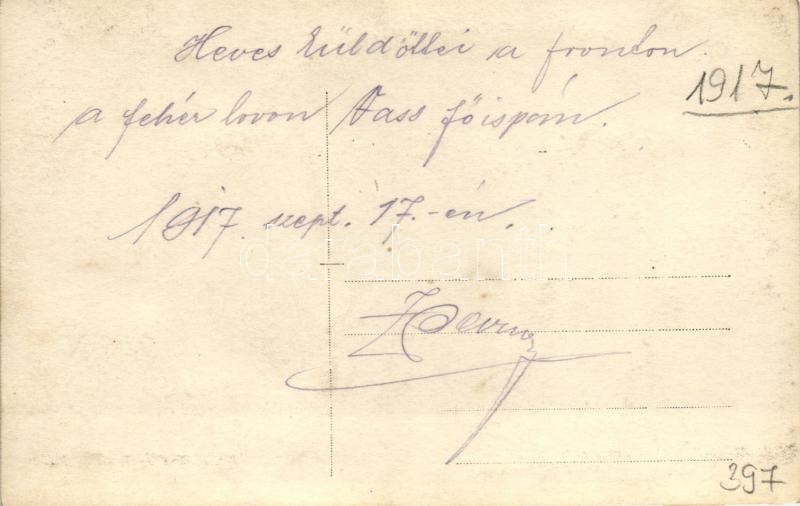 Heves küldöttei a fronton.
1917.
a fehér lovon Vass főispán.
1917 szept. 17.-én.
darabanth
397